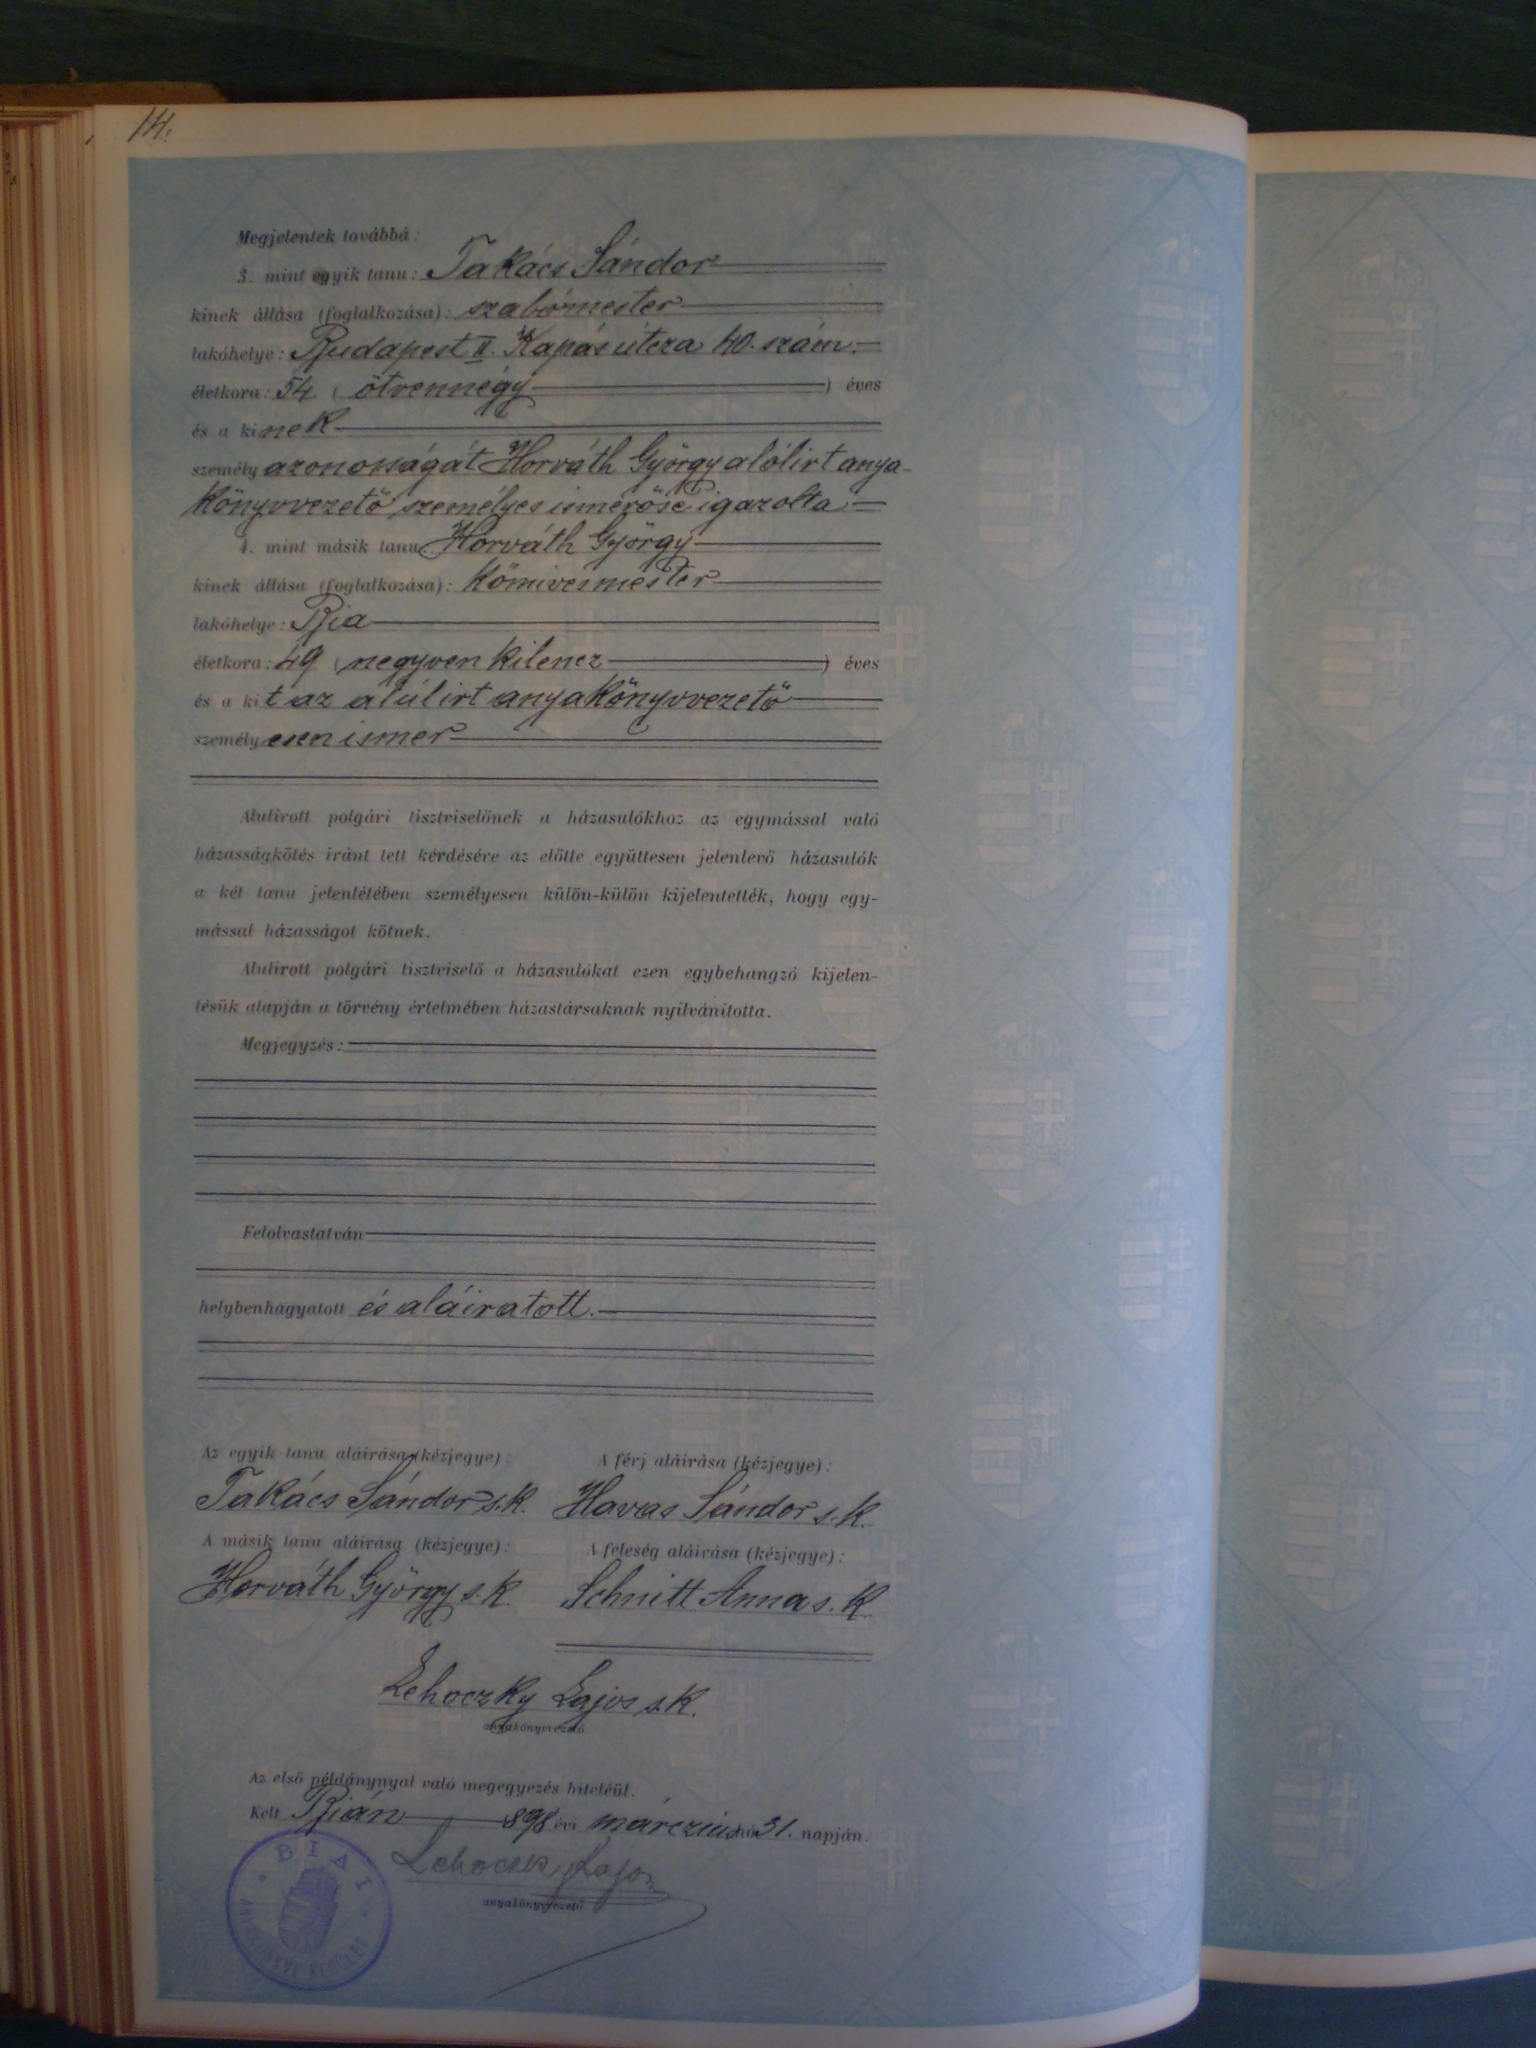 14.
Megjelentek továbbá:
3. mint egyik tanu: Takács Sándor
kinek állása (foglalkozása): szabómester
lakóhelye: Budapest II. Kapás útcza 40. szám.
életkora: 54 (ötvennégy) éves
és a kinek
személyazonosságát Horváth György alólirt anya-
könyvvezető személyes ismerőse igazolta.
4. mint másik tanu Horváth György
kinek állása (foglalkozása): kőmivesmester
lakóhelye: Bia
életkora: 49 (negyven kilencz) éves
és a kit az alúlirt anyakönyvvezető
személyesen ismer
Alulirott polgári tisztviselőnek a házasulókhoz az egymással való
házasságkötés iránt tett kérdésére az előtte együttesen jelenlevő házasulók
a két tanu jelenlétében személyesen külön-külön kijelentették, hogy egy-
mással házasságot kötnek.
Alulirott polgári tisztviselő a házasulókat ezen egybehangzó kijelen-
tésük alapján a törvény értelmében házastársaknak nyilvánította.
Megjegyzés:
Felolvastatván
helybenhagyatott és aláiratott.
Az egyik tanu aláírása (kézjegye): A férj aláírása (kézjegye):
Takács Sándor s.k. Havas Sándor s.k.
A másik tanu aláírása (kézjegye): A feleség aláírása (kézjegye):
Horváth György s.k. Schnitt Anna s.k.
Lehoczky Lajos s.k.
anyakönyvvezető
Az első példánynyal való megegyezés hiteléül.
Kelt Bián 898 évi márczius hó 31. napján.
Lehoczky Lajos
anyakönyvvezető
BIAI